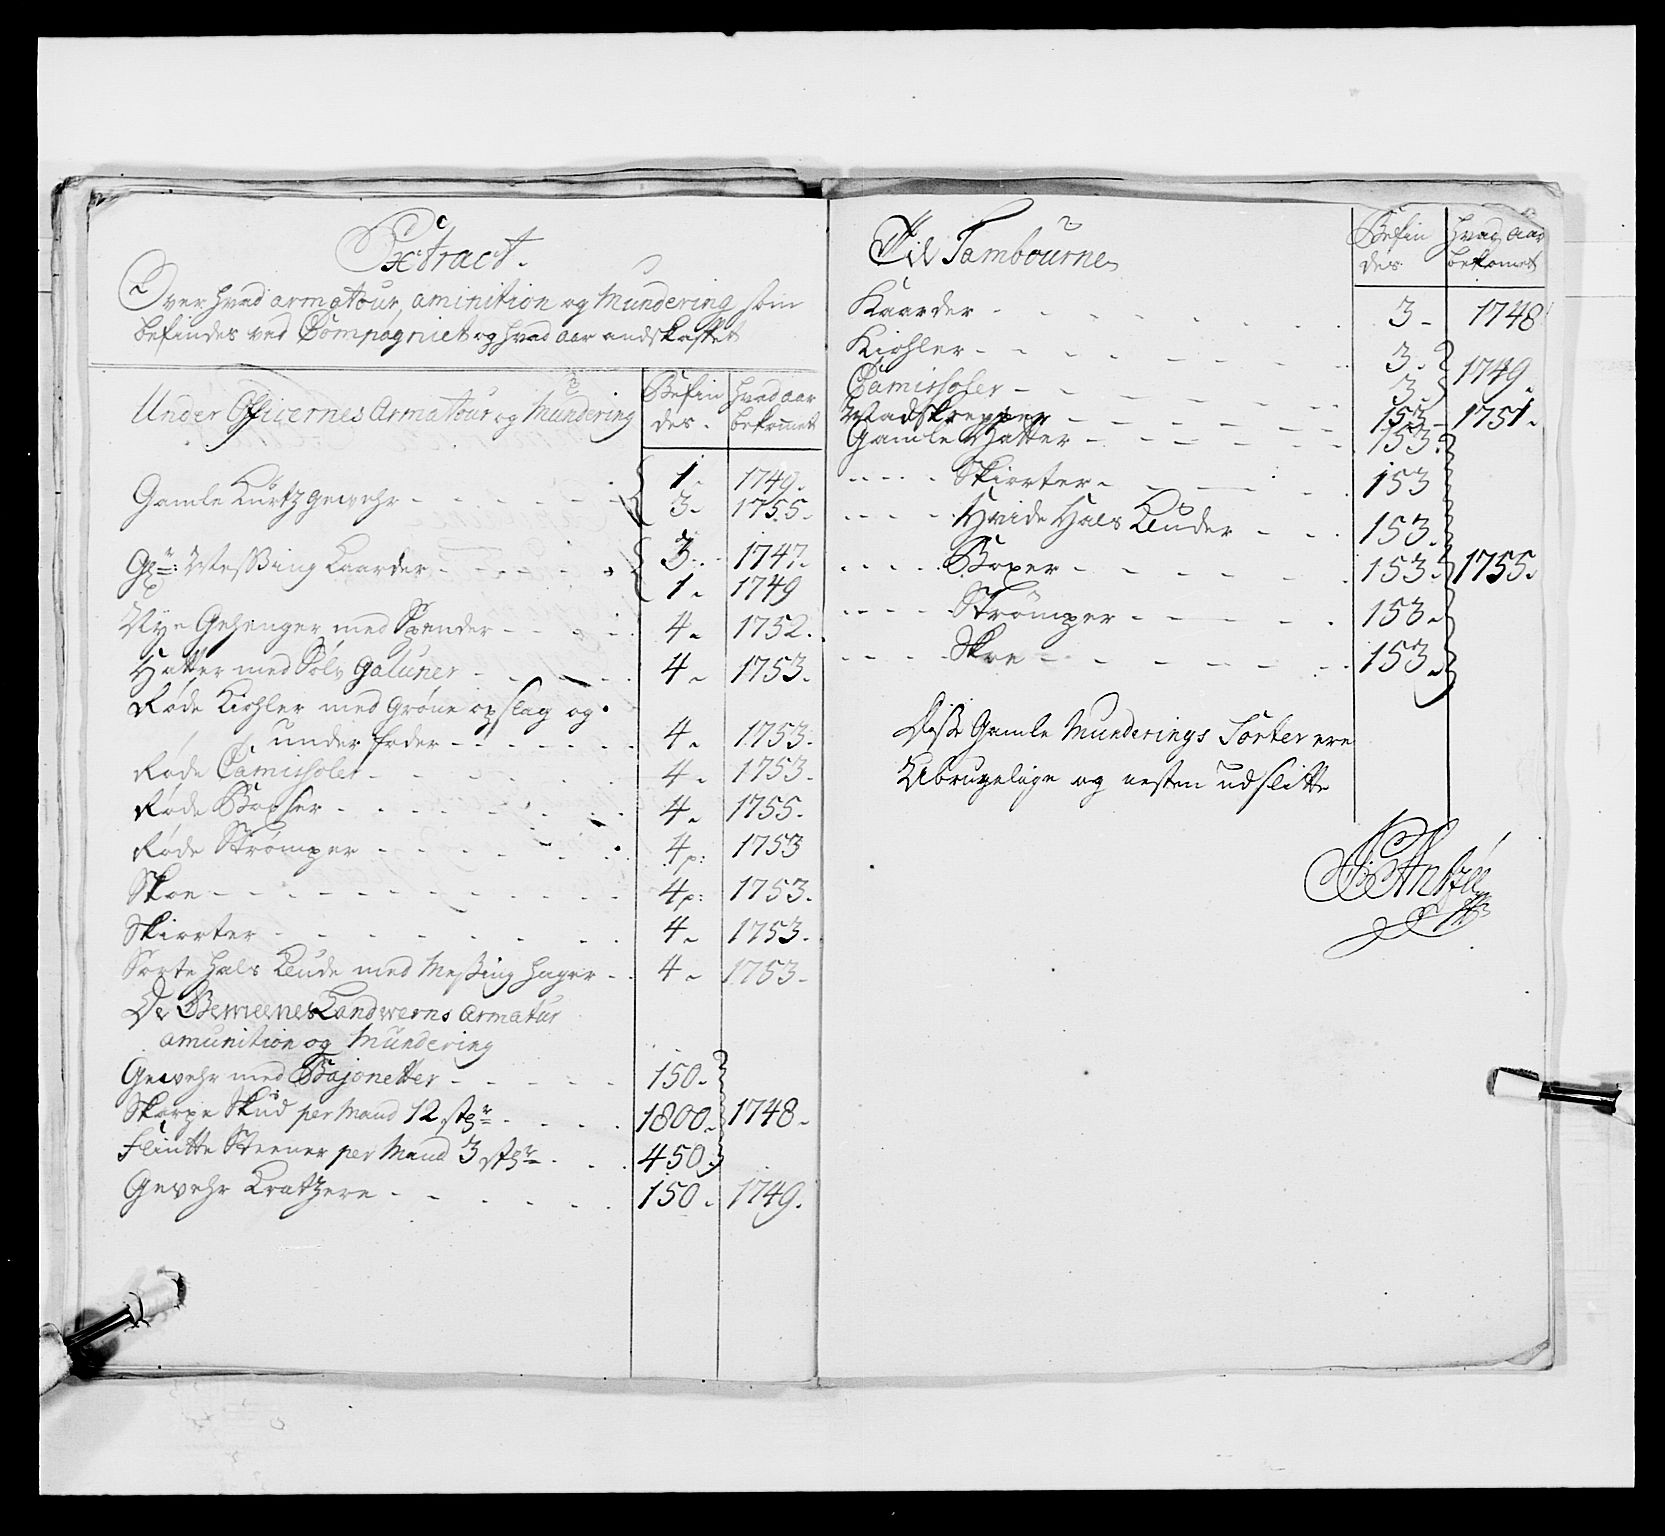 Extract.
Over hvad armatour, aminition og Mundering som
befindes ved Compagniet og hvad aar andskaffet
Under Officernes Armatour og Mundering
Befin des.
hvad aar bekomet
Gamle Kürtz gewehr - - - - - 1. 1749.
3. 1755.
Messing Kaarder - - - - - 3. 1747.
1. 1749
Nye Gehenger med Spender - - - 4. 1752.
Hatter med Sølv Galuner - - - - 4. 1753.
Røde Kiohler med Grøne opslag og
under foder - - - - - - 4. 1753.
Røde Camisholer - - - - - 4. 1753.
Røde Boxser - - - - - - 4. 1755.
Røde Strømper - - - - - - 4p: 1753
Skoe - - - - - - - - 4p: 1753.
Skiorter - - - - - - - 4. 1753.
Sorte Hals Klude med Messing Hager - - 4. 1753.
De Gemeenes Landwerns Armatur
amunition og Mundering
Gewehr med Bajonetter - - - - - 150.
Skarpe Skud per Mand 12 stkr - - - - 1800. 1748.
Flintte Steener per Mand 3 stkr - - - 450.
Gewehr Kratzere - - - - - - 150. 1749.
Til Tambourne
Befin des
hvad aar bekomet
Kaarder - - - - - - - - 3. 1748
Kiohler - - - - - - - - 3.
1749.
Camisholer - - - - - - - 3.
Madskrepper - - - - - - 153. 1751.
Gamle Hatter - - - - - - 153.
- - - - Skiorter - - - - - 153
- - - - Hvide Hals Klude - - - 153.
- - - - Boxer - - - - - - 153. 1755.
- - - - Strømper - - - - - 153.
- - - - Skoe - - - - - - - 153.
Disse Gamle Munderings Sorter ere
Ubrugelige og nesten udslitte